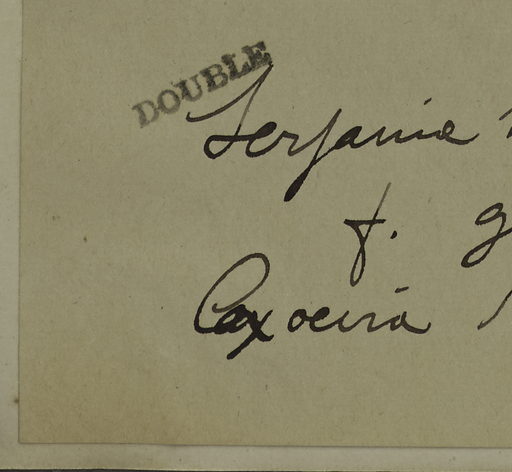 DOUBLE
Serjania
f. g
Caxoeira